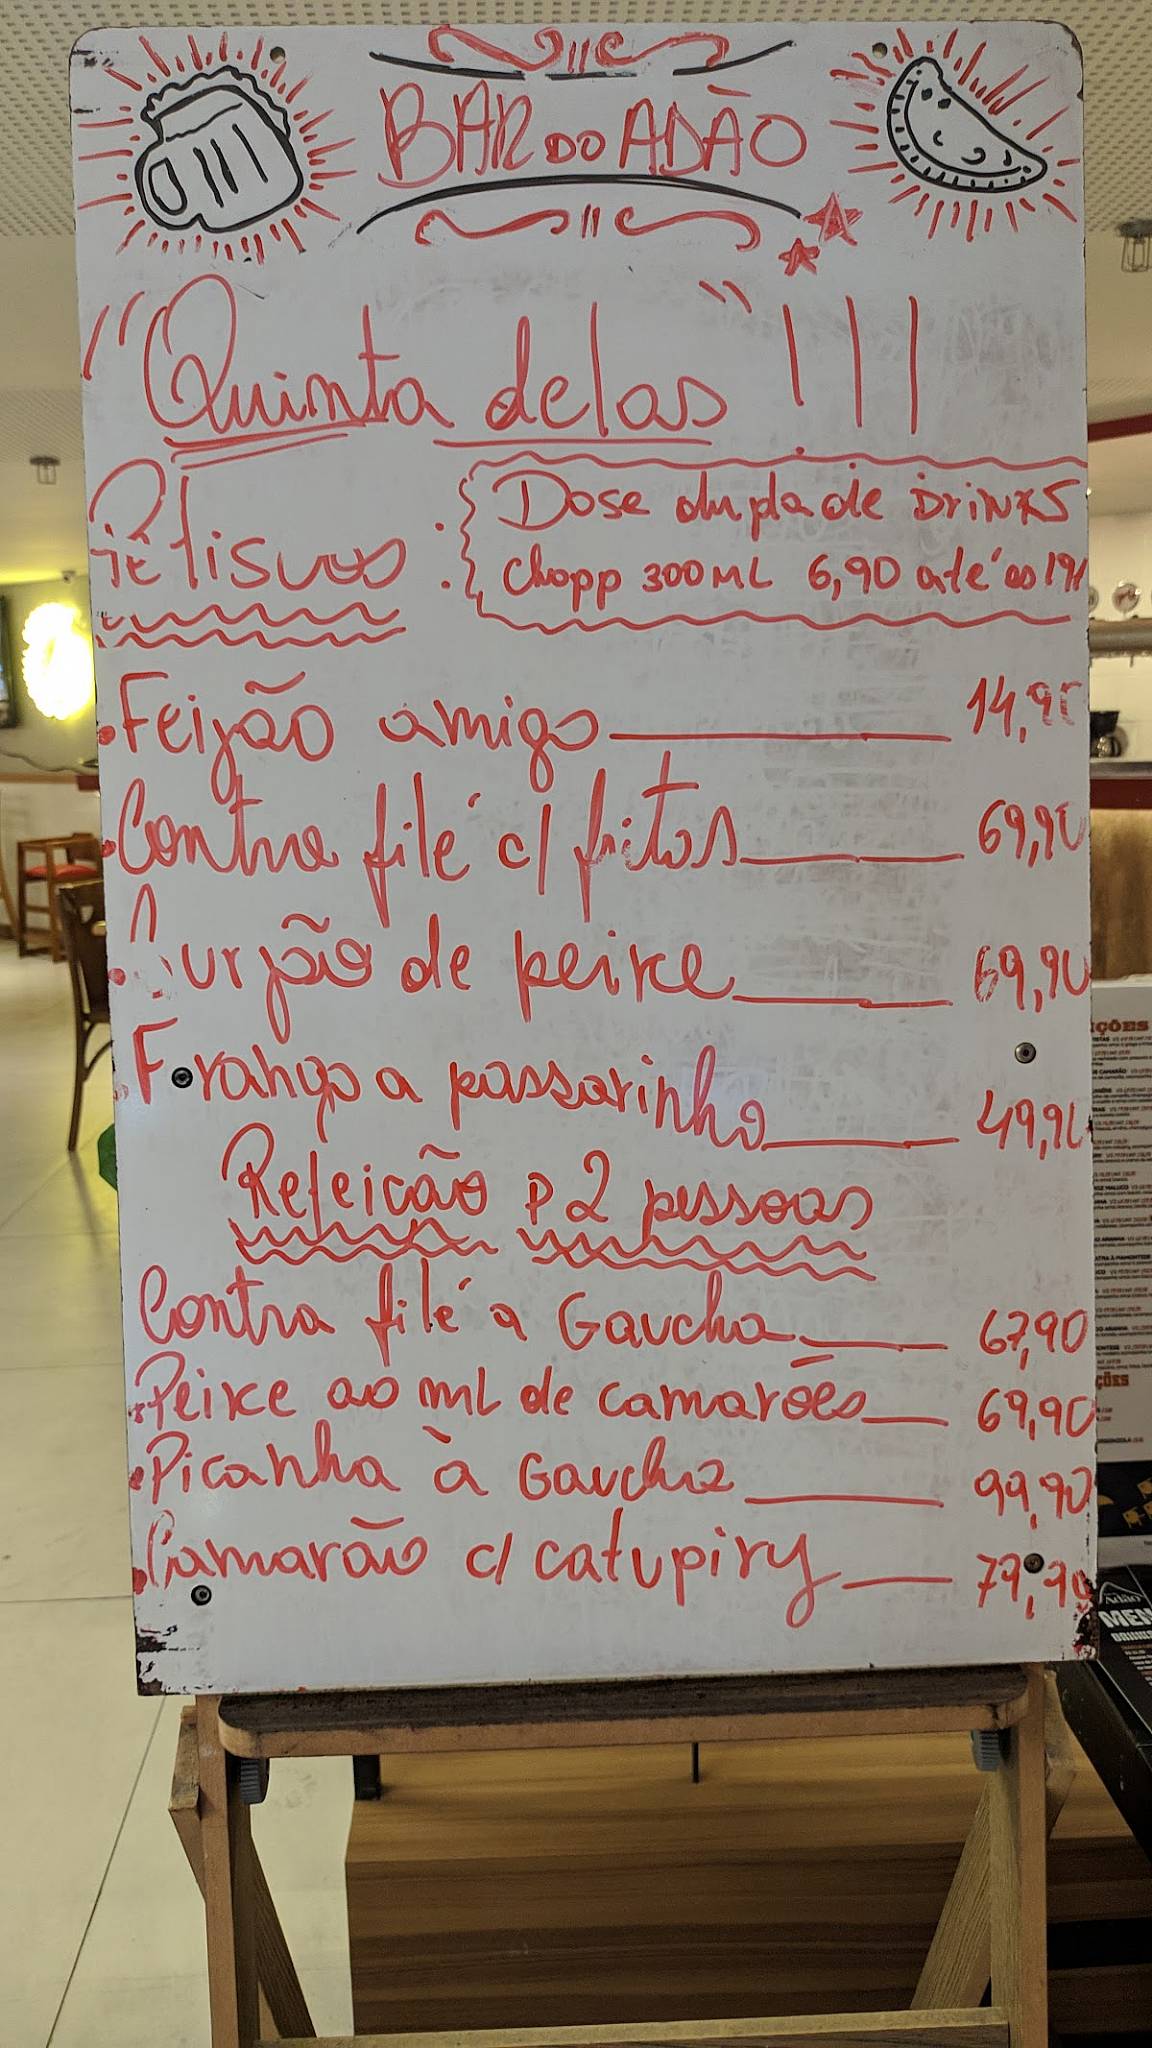 BAR DO ADÃO
"Quinta delas"!!!
Petiscos :
Dose dupla de DRINKS
Chopp 300ML 6,90 até as 19h
Feijão amigo 14,90
Contra filé c/ fritas 69,90
Gurjão de peixe 69,90
Frango a passarinho 49,90
Refeicão p 2 pessoas
Contra filé a Gaucha 67,90
Peixe ao mL de camarões 69,90
Picanha à Gaucha 99,90
Camarão c/ catupiry 79,90
ÇÕES
MEN